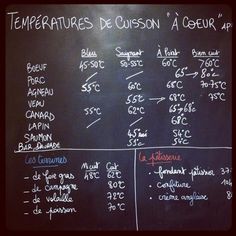 TEMPÉRATURES DE CUISSON "À COEUR" AP
Bleu Saignant À Point Bien cuit
BOEUF 45-50°C 50-55°C 60°C 760°C
PORC / / 65° → 80°C
AGNEAU 55°C 60°C 68°C 70-75°C
VEAU / 55°C → 68°C 75°C
CANARD 55°C 62°C 65° → 68°C
LAPIN / / 68°C
SAUMON 45°C 51°C 54°C
BAR DAURADE 52°C 54°C
Les Terrines M.cuit Cuit
- de foie gras 48°C 62°C
- de campagne 80°C
- de volaille 72°C
- de poisson 70°C
La pâtisserie
- fondant pâtissier 37
- confiture 104
- crème anglaise 8